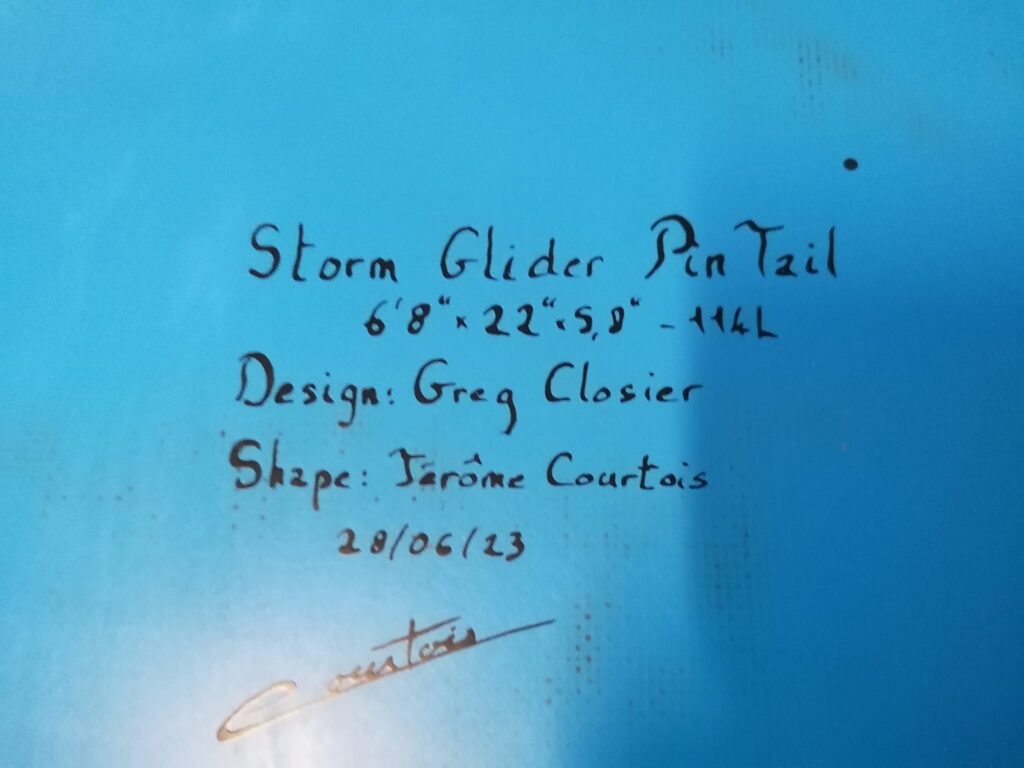 Storm Glider Pin Tail
6'8" x 22" x 5,8" - 114L
Design: Greg Closier
Shape: Jérôme Courtois
28/06/23
Courtois